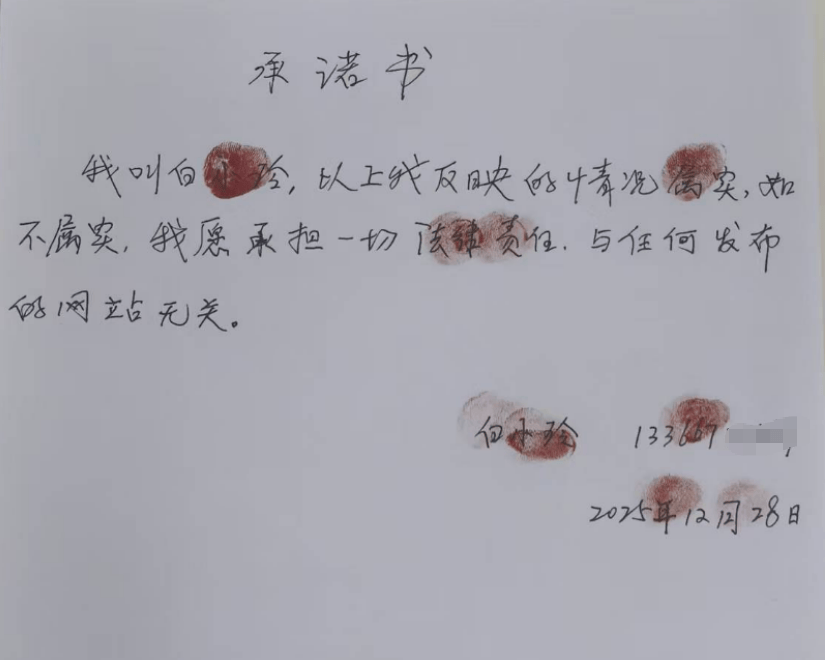 承诺书
我叫白小玲，以上我反映的情况属实，如
不属实，我愿承担一切法律责任．与任何发布
的网站无关。
白小玲 133667
2025年12月28日